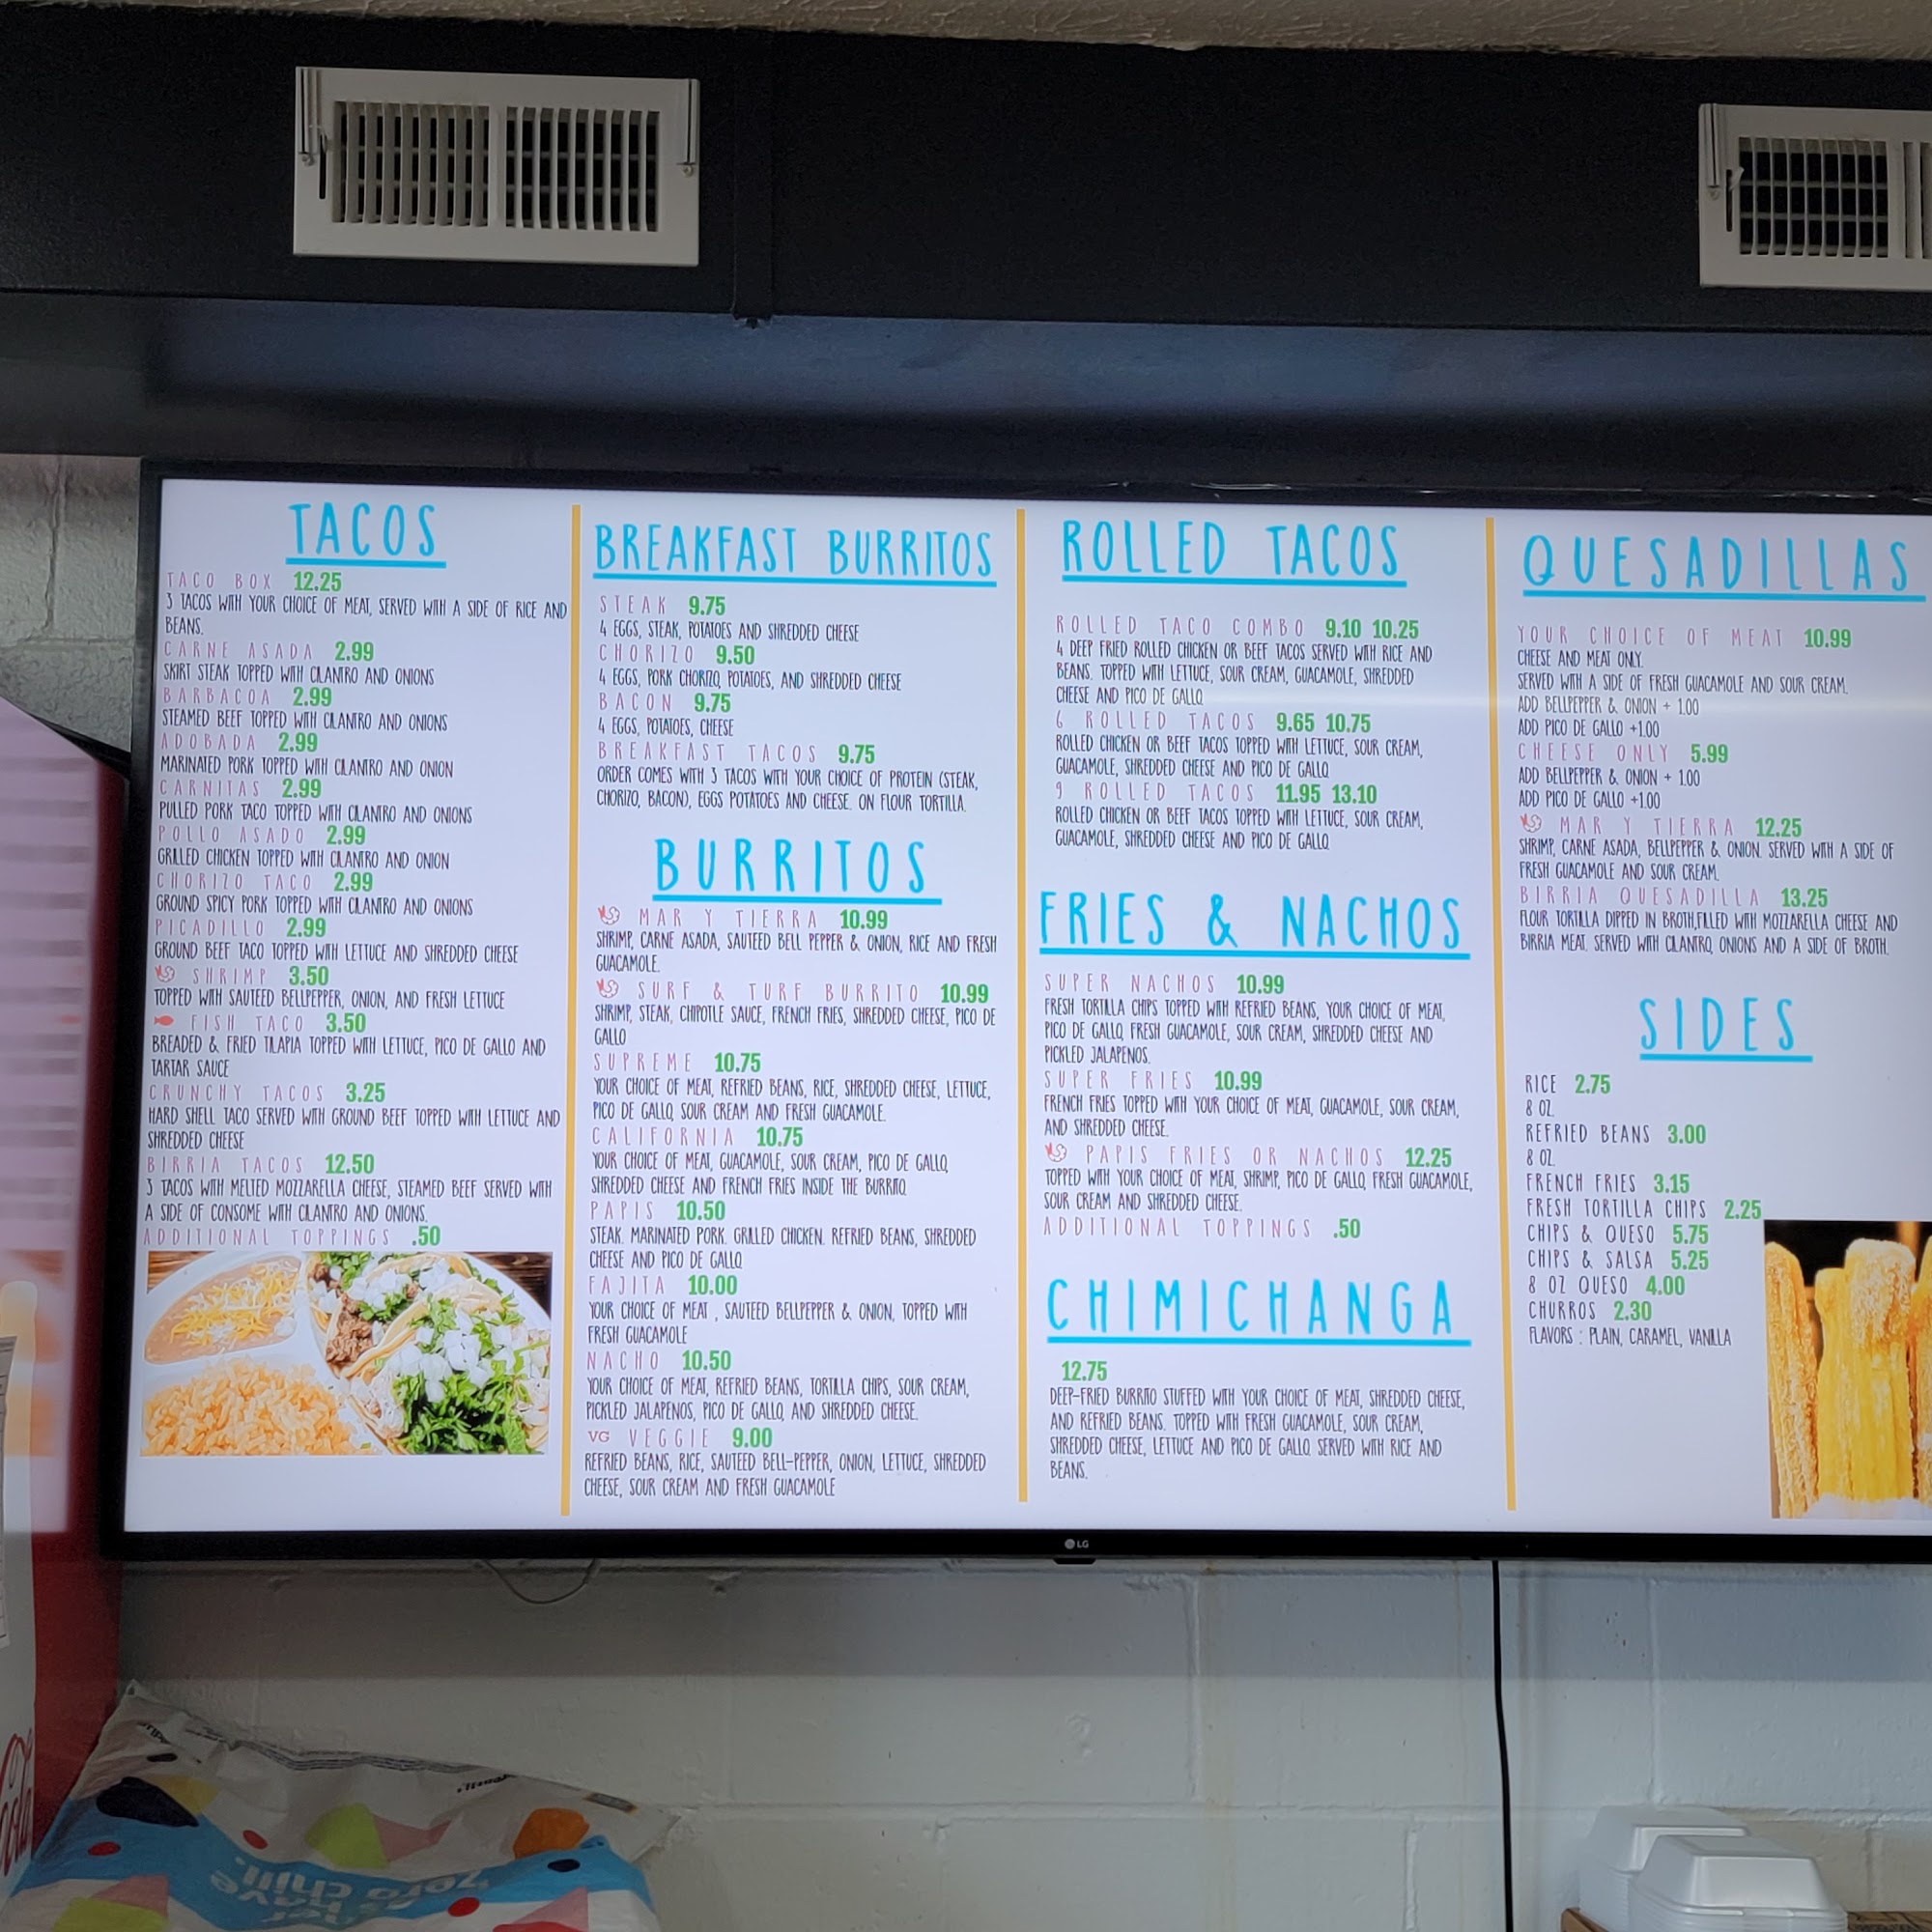 TACOS
TACO BOX 12.25
3 TACOS WITH YOUR CHOICE OF MEAT, SERVED WITH A SIDE OF RICE AND
BEANS.
CARNE ASADA 2.99
SKIRT STEAK TOPPED WITH CILANTRO AND ONIONS
BARBACOA 2.99
STEAMED BEEF TOPPED WITH CILANTRO AND ONIONS
ADOBADA 2.99
MARINATED PORK TOPPED WITH CILANTRO AND ONION
CARNITAS 2.99
PULLED PORK TACO TOPPED WITH CILANTRO AND ONIONS
POLLO ASADO 2.99
GRILLED CHICKEN TOPPED WITH CILANTRO AND ONION
CHORIZO TACO 2.99
GROUND SPICY PORK TOPPED WITH CILANTRO AND ONIONS
PICADILLO 2.99
GROUND BEEF TACO TOPPED WITH LETTUCE AND SHREDDED CHEESE
SHRIMP 3.50
TOPPED WITH SAUTEED BELLPEPPER, ONION, AND FRESH LETTUCE
FISH TACO 3.50
BREADED & FRIED TILAPIA TOPPED WITH LETTUCE, PICO DE GALLO AND
TARTAR SAUCE
CRUNCHY TACOS 3.25
HARD SHELL TACO SERVED WITH GROUND BEEF TOPPED WITH LETTUCE AND
SHREDDED CHEESE
BIRRIA TACOS 12.50
3 TACOS WITH MELTED MOZZARELLA CHEESE, STEAMED BEEF SERVED WITH
A SIDE OF CONSOME WITH CILANTRO AND ONIONS.
ADDITIONAL TOPPINGS .50
BREAKFAST BURRITOS
STEAK 9.75
4 EGGS, STEAK, POTATOES AND SHREDDED CHEESE
CHORIZO 9.50
4 EGGS, PORK CHORIZO, POTATOES, AND SHREDDED CHEESE
BACON 9.75
4 EGGS, POTATOES, CHEESE
BREAKFAST TACOS 9.75
ORDER COMES WITH 3 TACOS WITH YOUR CHOICE OF PROTEIN (STEAK,
CHORIZO, BACON), EGGS POTATOES AND CHEESE. ON FLOUR TORTILLA.
BURRITOS
MAR Y TIERRA 10.99
SHRIMP, CARNE ASADA, SAUTEED BELL PEPPER & ONION, RICE AND FRESH
GUACAMOLE.
SURF & TURF BURRITO 10.99
SHRIMP, STEAK, CHIPOTLE SAUCE, FRENCH FRIES, SHREDDED CHEESE, PICO DE
GALLO
SUPREME 10.75
YOUR CHOICE OF MEAT, REFRIED BEANS, RICE, SHREDDED CHEESE, LETTUCE,
PICO DE GALLO, SOUR CREAM AND FRESH GUACAMOLE.
CALIFORNIA 10.75
YOUR CHOICE OF MEAT, GUACAMOLE, SOUR CREAM, PICO DE GALLO,
SHREDDED CHEESE AND FRENCH FRIES INSIDE THE BURRITO.
PAPIS 10.50
STEAK. MARINATED PORK. GRILLED CHICKEN. REFRIED BEANS, SHREDDED
CHEESE AND PICO DE GALLO.
FAJITA 10.00
YOUR CHOICE OF MEAT , SAUTEED BELLPEPPER & ONION, TOPPED WITH
FRESH GUACAMOLE
NACHO 10.50
YOUR CHOICE OF MEAT, REFRIED BEANS, TORTILLA CHIPS, SOUR CREAM,
PICKLED JALAPENOS, PICO DE GALLO, AND SHREDDED CHEESE.
VG VEGGIE 9.00
REFRIED BEANS, RICE, SAUTEED BELL-PEPPER, ONION, LETTUCE, SHREDDED
CHEESE, SOUR CREAM AND FRESH GUACAMOLE
ROLLED TACOS
ROLLED TACO COMBO 9.10 10.25
4 DEEP FRIED ROLLED CHICKEN OR BEEF TACOS SERVED WITH RICE AND
BEANS. TOPPED WITH LETTUCE, SOUR CREAM, GUACAMOLE, SHREDDED
CHEESE AND PICO DE GALLO.
6 ROLLED TACOS 9.65 10.75
ROLLED CHICKEN OR BEEF TACOS TOPPED WITH LETTUCE, SOUR CREAM,
GUACAMOLE, SHREDDED CHEESE AND PICO DE GALLO.
9 ROLLED TACOS 11.95 13.10
ROLLED CHICKEN OR BEEF TACOS TOPPED WITH LETTUCE, SOUR CREAM,
GUACAMOLE, SHREDDED CHEESE AND PICO DE GALLO.
FRIES & NACHOS
SUPER NACHOS 10.99
FRESH TORTILLA CHIPS TOPPED WITH REFRIED BEANS, YOUR CHOICE OF MEAT,
PICO DE GALLO, FRESH GUACAMOLE, SOUR CREAM, SHREDDED CHEESE AND
PICKLED JALAPENOS.
SUPER FRIES 10.99
FRENCH FRIES TOPPED WITH YOUR CHOICE OF MEAT, GUACAMOLE, SOUR CREAM,
AND SHREDDED CHEESE.
PAPIS FRIES OR NACHOS 12.25
TOPPED WITH YOUR CHOICE OF MEAT, SHRIMP, PICO DE GALLO, FRESH GUACAMOLE,
SOUR CREAM AND SHREDDED CHEESE.
ADDITIONAL TOPPINGS .50
CHIMICHANGA
12.75
DEEP-FRIED BURRITO STUFFED WITH YOUR CHOICE OF MEAT, SHREDDED CHEESE,
AND REFRIED BEANS. TOPPED WITH FRESH GUACAMOLE, SOUR CREAM,
SHREDDED CHEESE, LETTUCE AND PICO DE GALLO. SERVED WITH RICE AND
BEANS.
QUESADILLAS
YOUR CHOICE OF MEAT 10.99
CHEESE AND MEAT ONLY.
SERVED WITH A SIDE OF FRESH GUACAMOLE AND SOUR CREAM.
ADD BELLPEPPER & ONION + 1.00
ADD PICO DE GALLO +1.00
CHEESE ONLY 5.99
ADD BELLPEPPER & ONION + 1.00
ADD PICO DE GALLO +1.00
MAR Y TIERRA 12.25
SHRIMP, CARNE ASADA, BELLPEPPER & ONION. SERVED WITH A SIDE OF
FRESH GUACAMOLE AND SOUR CREAM.
BIRRIA QUESADILLA 13.25
FLOUR TORTILLA DIPPED IN BROTH,FILLED WITH MOZZARELLA CHEESE AND
BIRRIA MEAT. SERVED WITH CILANTRO, ONIONS AND A SIDE OF BROTH.
SIDES
RICE 2.75
8 OZ.
REFRIED BEANS 3.00
8 OZ.
FRENCH FRIES 3.15
FRESH TORTILLA CHIPS 2.25
CHIPS & QUESO 5.75
CHIPS & SALSA 5.25
8 OZ QUESO 4.00
CHURROS 2.30
FLAVORS : PLAIN, CARAMEL, VANILLA
LG
zero chill.